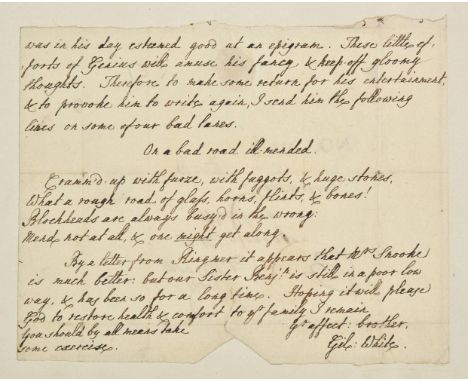 was in his day esteemed good at an epigram. These little ef,
forts of Genius will amuse his fancy, & keep off gloomy
thoughts. Therefore to make some return for his entertainment,
& to provoke him to write again, I send him the following
lines on some of our bad lanes.
On a bad road ill-mended.
Cramm'd-up with furze, with faggots, & huge stones,
What a rough road of glass, horns, flints, & bones!
Blockheads are always busy'd in the wrong:
Mend, not at all, & one might get along.
By a letter from Ringmer it appears that Mrs Snooke
is much better: but our Sister Benjn. is still in a poor low
way, & has been so for a long time. Hoping it will please
God to restore health & comfort to yr family I remain
You should by all means take
some exercise.
Yr affect: brother,
Gil: White.